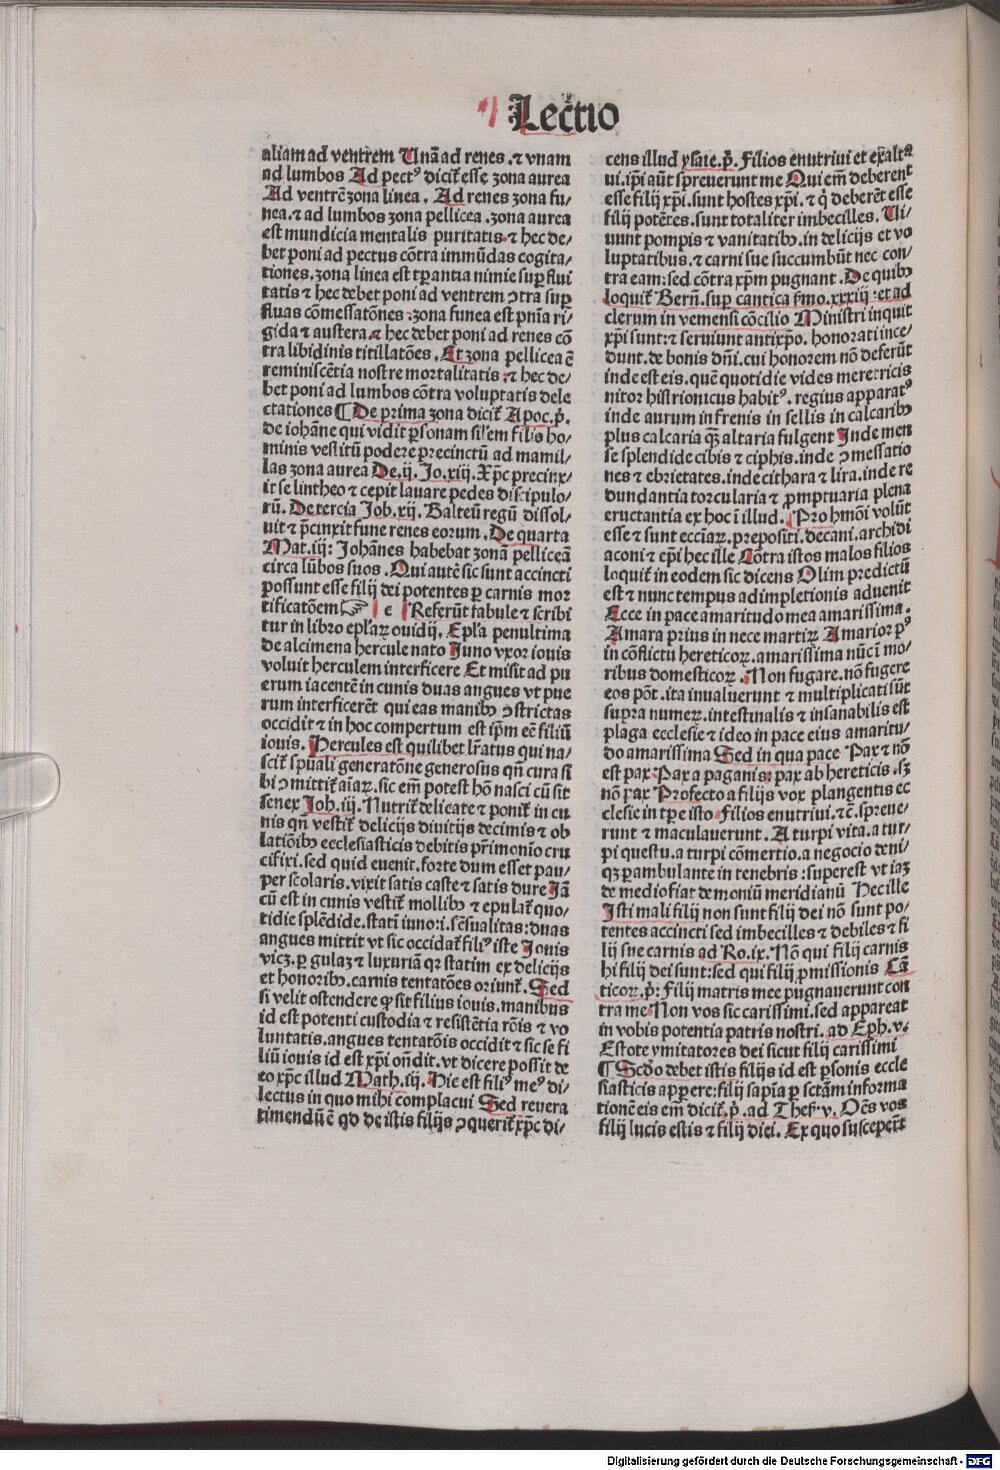 Lectio
aliam ad ventrem Unã ad renes .⁊ vnam
ad lumbos Ad pectꝰ dicit̃ esse zona aurea
Ad ventrẽ zona linea . Ad renes zona fu/
nea.⁊ ad lumbos zona pellicea .zona aurea
est mundicia mentalis puritatis ⁊ hec de/
bet poni ad pectus cõtra immũdas cogita/
tiones .zona linea est tꝑantia nimie suꝑflui
tatis ⁊ hec debet poni ad ventrem ꝯtra suꝑ
fluas cõmessatõnes :zona funea est pnĩa ri/
gida ⁊ austera ⁊ hec debet poni ad renes cõ
tra libidinis titillatões . Et zona pellicea ẽ
reminiscẽtia nostre mortalitatis :⁊ hec de/
bet poni ad lumbos cõtra voluptatis dele
ctationes ¶ De prima zona dicit̃ Apoc.p̃.
de iohãne qui vidit ꝑsonam sil'em filis ho/
minis vestitũ podere precinctũ ad mamil/
las zona aurea De.ij. Jo.xiij. Xp̃c precinx/
it se lintheo ⁊ cepit lauare pedes discipulo/
rũ. De tercia Job.xij. Balteũ regũ dissol/
uit ⁊ p̃cinxit fune renes eorum. De quarta
Mat.iij: Johãnes habebat zonã pelliceã
circa lũbos suos . Qui autẽ sic sunt accincti
possunt esse filij dei potentes ꝑ carnis mor
tificatõem ☞ e Referũt fabule ⁊ scribi
tur in libro epl'aꝝ ouidij. Epl'a penultima
de alcimena hercule nato Juno vxor iouis
voluit herculem interficere Et misit ad pu
erum iacentẽ in cunis duas angues vt pue
rum interficerẽt qui eas manibꝰ ꝯstrictas
occidit ⁊ in hoc compertum est ip̃m eẽ filiũ
iouis. Hercules est quilibet lr̃atus qui na/
scit̃ spũali generatõne generosus qñ cura si
bi ꝯmittit̃ aĩaꝝ.sic em̃ potest hõ nasci cũ sit
senex Joh.iij. Nutrit̃ delicate ⁊ ponit̃ in cu
nis qñ vestit̃ delicijs diuitijs decimis ⁊ ob
latiõibꝰ ecclesiasticis debitis pr̃imonio cru
cifixi.sed quid euenit.forte dum esset pau/
per scolaris.vixit satis caste ⁊ satis dure Jã
cũ est in cunis vestit̃ mollibꝰ ⁊ epulat̃ quo/
tidie splẽdide.statĩ iuno:i.sẽsualitas:duas
angues mittit vt sic occidat̃ filiꝰ iste Jouis
vicꝫ.ꝑ gulaꝫ ⁊ luxuriã qꝛ statim ex delicijs
et honoribꝰ.carnis tentatões oriunt̃. Sed
si velit ostendere ꝙ sit filius iouis.manibus
id est potenti custodia ⁊ resistẽtia rõis ⁊ vo
luntatis.angues tentatõis occidit ⁊ sic se fi
liũ iouis id est xp̃i oñdit.vt dicere possit de
eo xp̃c illud Math.iij. Hic est filiꝰ meꝰ di/
lectus in quo mihi complacui Sed reuera
timendũ ẽ qd de istis filijs ꝯquerit̃ xp̃c di/
cens illud ysaie.p̃. Filios enutriui et exalta
ui.ip̃i aũt spreuerunt me Qui em̃ deberent
esse filij xp̃i.sunt hostes xp̃i.⁊ q̃ deberẽt esse
filij potẽtes.sunt totaliter imbecilles. Ui/
uunt pompis ⁊ vanitatibꝰ.in delicijs et vo
luptatibus.⁊ carni sue succumbũt nec con/
tra eam:sed cõtra xp̃m pugnant. De quibꝰ
loquit̃ Berñ.suꝑ cantica s̃mo.xxxiij:et ad
clerum in vemensi cõcilio Ministri inquit
xp̃i sunt:⁊ seruiunt antixp̃o.honorati ince/
dunt.de bonis dñi.cui honorem nõ deferũt
inde est eis.quẽ quotidie vides meretricis
nitor histrionicus habitꝰ.regius apparatꝰ
inde aurum in frenis in sellis in calcaribꝰ
plus calcaria qꝫ altaria fulgent Inde men
se splendide cibis ⁊ ciphis.inde ꝯmessatio
nes ⁊ ebrietates.inde cithara ⁊ lira.inde re
dundantia torcularia ⁊ ꝓmptuaria plena
eructantia ex hoc ĩ illud. Pro hmõi volũt
esse ⁊ sunt ecciaꝝ.prepositi.decani.archidi
aconi ⁊ ep̃i hec ille Cõtra istos malos filios
loquit̃ in eodem sic dicens Olim predictũ
est ⁊ nunc tempus adimpletionis aduenit
Ecce in pace amaritudo mea amarissima.
Amara prius in nece martiꝝ Amarior pꝰ
in cõflictu hereticoꝝ.amarissima nũc ĩ mo/
ribus domesticoꝝ. Non fugare.nõ fugere
eos põt.ita inualuerunt ⁊ multiplicati sũt
supra numeꝝ.intestinalis ⁊ insanabilis est
plaga ecclesie ⁊ ideo in pace eius amaritu/
do amarissima Sed in qua pace Pax ⁊ nõ
est pax.Pax a paganis:pax ab hereticis.sꝫ
nõ pax Profecto a filijs vox plangentis ec
clesie in tp̃e isto Filios enutriui.⁊c̃.spreue/
runt ⁊ maculauerunt. A turpi vita.a tur/
pi questu.a turpi cõmertio.a negocio deni/
qꝫ perambulante in tenebris:superest vt iaꝫ
de medio fiat demoniũ meridianũ Hec ille
Isti mali filij non sunt filij dei nõ sunt po/
tentes accincti sed imbecilles ⁊ debiles ⁊ fi
lij sue carnis ad Ro.ix. Nõ qui filij carnis
hi filij dei sunt:sed qui filij ꝓmissionis Cã
ticoꝝ.p̃: Filij matris mee pugnauerunt con
tra me Non vos sic carissimi.sed appareat
in vobis potentia patris nostri. ad Eph.v.
Estote ymitatores dei sicut filij carissimi
¶ Scd̃o debet istis filijs id est ꝑsonis eccle
siasticis apꝑere:filij sapĩa ꝑ sctãm informa
tionẽ eis em̃ dicit̃.p̃.ad Thes.v. Oẽs vos
filij lucis estis ⁊ filij diei. Ex quo susceper̃t
Digitalisierung gefördert durch die Deutsche Forschungsgemeinschaft - DFG